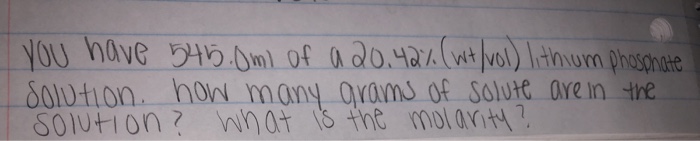 you have 545.0ml of a 20.42% (wt/vol) lithium phosphate
solution. how many grams of solute are in the
solution? what is the molarity?